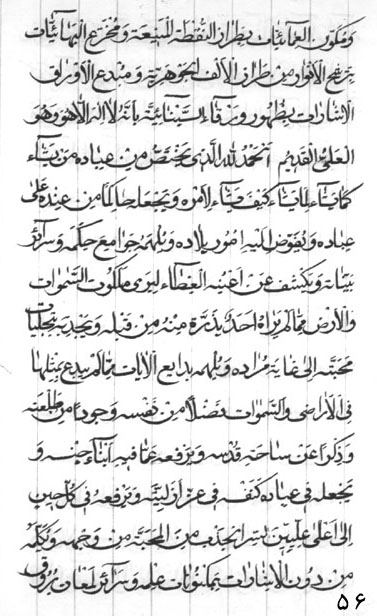 ومكون العمائيات بطراز النقطة المنيعة ومخترع البهائيات
برشح الانوار من طراز الالف الجوهرية ومبدع الاوراق
الانشارات بظهور ورقاء السينائية بانه لا اله الا هو وهو
العلي القديم الحمد لله الذي يختص من عباده من يشاء
كما يشاء لما يشاء كيف يشاء لامره ويجعله حاكما من عنده على
عباده ويفوض اليه امور بلاده ويلهمه جوامع حكمه وسرائر
بيانه ويكشف عن اعينه الغطاء ليرى ملكوت السموات
والارض مما لم يراه احد بذرة منه من قبله ويجذبه بتجليات
محبته الى غاية مراده ويلهمه بدايع الايات مما لم يبدع بمثلها
في الاراضي والسموات فضلا من نفسه وجودا من طلعته
وذكرا عن ساحة قدسه ويرفعه عما فيه ابناء جنسه و
يجعله في عباده كنفسه في عز ازليته ويرفعه في كل حين
الى اعلى عليين بسر انجذب من المحبة من وجهه ويكلمه
من دون الاشارات بمكنونات علمه وسرائر لمعان بروق
۵۶